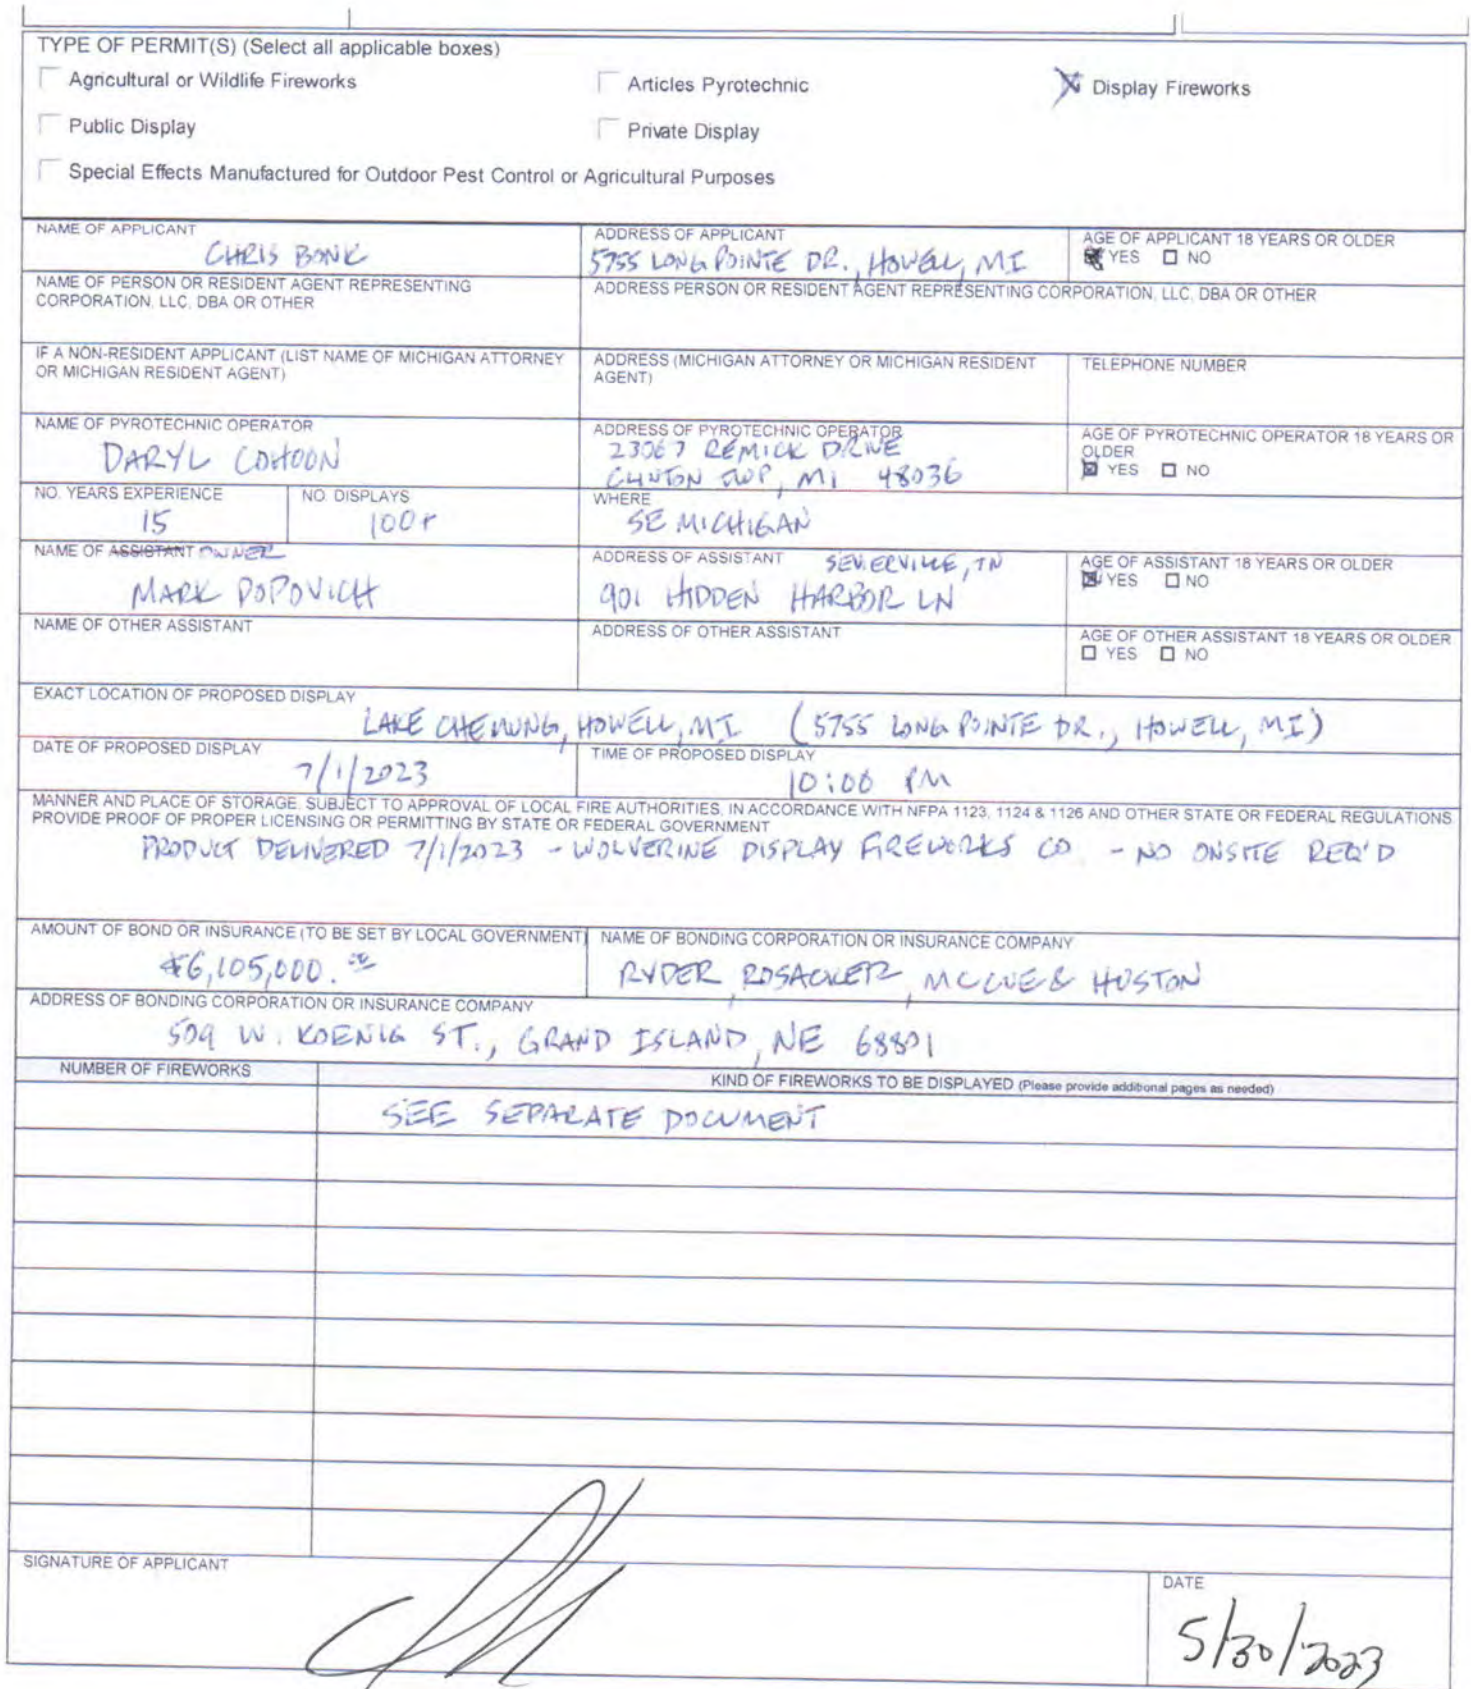 TYPE OF PERMIT(S) (Select all applicable boxes)
Agricultural or Wildlife Fireworks
Articles Pyrotechnic
Display Fireworks
Public Display
Private Display
Special Effects Manufactured for Outdoor Pest Control or Agricultural Purposes
NAME OF APPLICANT
CHRIS BONK
ADDRESS OF APPLICANT
5755 LONG POINTE DR., HOWELL, MI
AGE OF APPLICANT 18 YEARS OR OLDER
YES NO
NAME OF PERSON OR RESIDENT AGENT REPRESENTING
CORPORATION, LLC, DBA OR OTHER
ADDRESS PERSON OR RESIDENT AGENT REPRESENTING CORPORATION, LLC, DBA OR OTHER
IF A NON-RESIDENT APPLICANT (LIST NAME OF MICHIGAN ATTORNEY
OR MICHIGAN RESIDENT AGENT)
ADDRESS (MICHIGAN ATTORNEY OR MICHIGAN RESIDENT
AGENT)
TELEPHONE NUMBER
NAME OF PYROTECHNIC OPERATOR
DARYL COHOON
ADDRESS OF PYROTECHNIC OPERATOR
23067 REMICK DRIVE
CLINTON TWP, MI 48036
AGE OF PYROTECHNIC OPERATOR 18 YEARS OR
OLDER
YES NO
NO. YEARS EXPERIENCE
15
NO. DISPLAYS
100+
WHERE
SE MICHIGAN
NAME OF ASSISTANT OWNER
MARK POPOVICH
ADDRESS OF ASSISTANT SEVIERVILLE, TN
901 HIDDEN HARBOR LN
AGE OF ASSISTANT 18 YEARS OR OLDER
YES NO
NAME OF OTHER ASSISTANT
ADDRESS OF OTHER ASSISTANT
AGE OF OTHER ASSISTANT 18 YEARS OR OLDER
YES NO
EXACT LOCATION OF PROPOSED DISPLAY
LAKE CHEMUNG, HOWELL, MI (5755 LONG POINTE DR., HOWELL, MI)
DATE OF PROPOSED DISPLAY
7/1/2023
TIME OF PROPOSED DISPLAY
10:00 PM
MANNER AND PLACE OF STORAGE, SUBJECT TO APPROVAL OF LOCAL FIRE AUTHORITIES, IN ACCORDANCE WITH NFPA 1123, 1124 & 1126 AND OTHER STATE OR FEDERAL REGULATIONS
PROVIDE PROOF OF PROPER LICENSING OR PERMITTING BY STATE OR FEDERAL GOVERNMENT
PRODUCT DELIVERED 7/1/2023 - WOLVERINE DISPLAY FIREWORKS CO - NO ONSITE REQ'D
AMOUNT OF BOND OR INSURANCE (TO BE SET BY LOCAL GOVERNMENT)
$6,105,000.00
NAME OF BONDING CORPORATION OR INSURANCE COMPANY
RYDER, ROSACKER, MCCUE & HUSTON
ADDRESS OF BONDING CORPORATION OR INSURANCE COMPANY
509 W. KOENIG ST., GRAND ISLAND, NE 68801
NUMBER OF FIREWORKS
KIND OF FIREWORKS TO BE DISPLAYED (Please provide additional pages as needed)
SEE SEPARATE DOCUMENT
SIGNATURE OF APPLICANT
DATE
5/30/2023